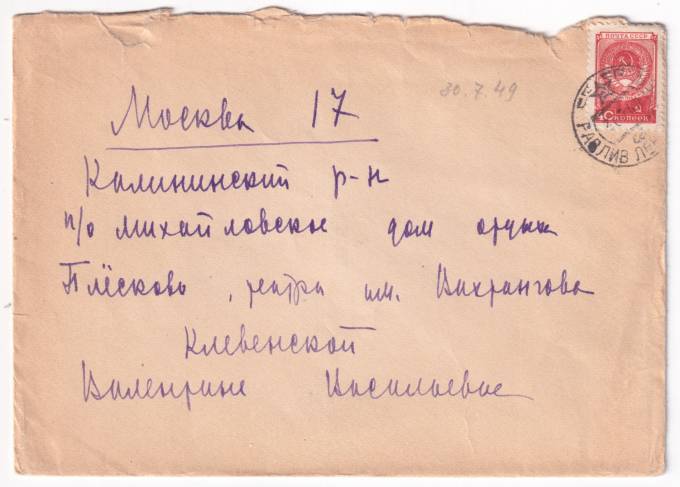 30.7.49
ПОЧТА СССР
40 КОПЕЕК
РАЗЛИВ ЛЕ
Москва 17
Калининский р-н
п/о Михайловское дом отдыха
Плёсково, театра им. Вахтангова
Клевенской
Валентине Васильевне